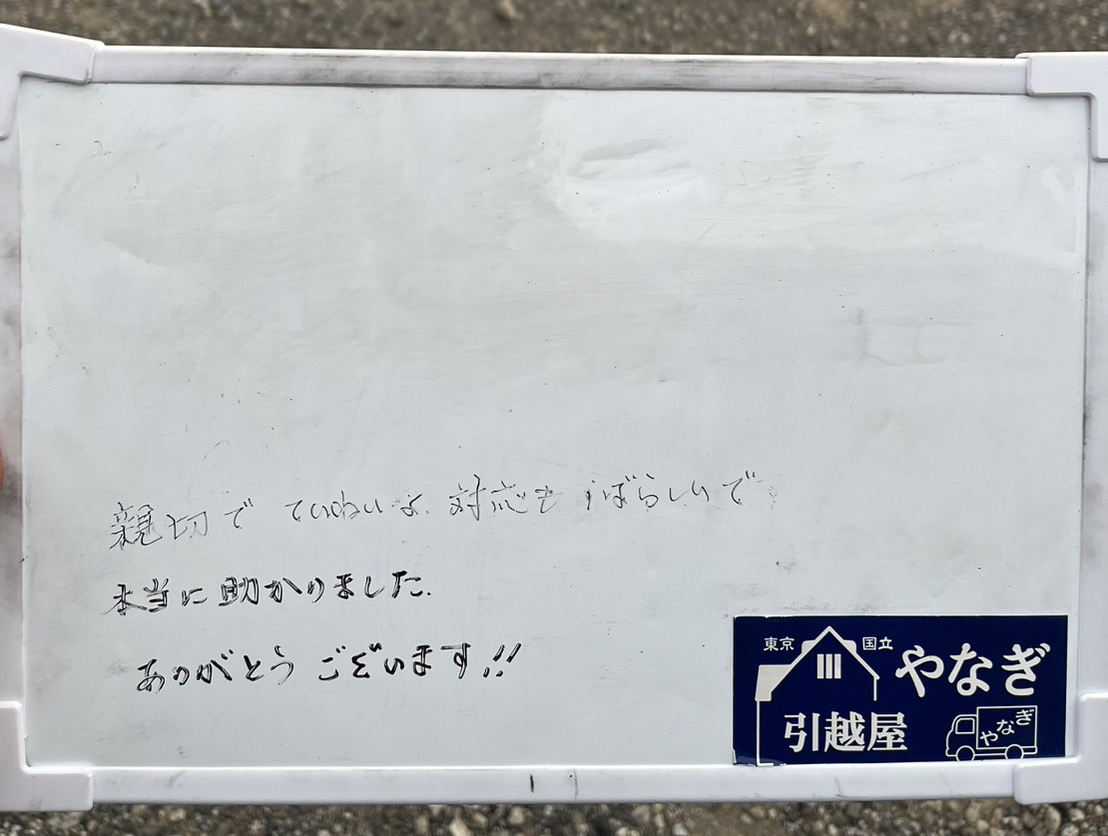 親切で ていねいな 対応も すばらしいで
本当に助かりました.
ありがとう ございます!!
東京 国立 やなぎ
引越屋 やなぎ